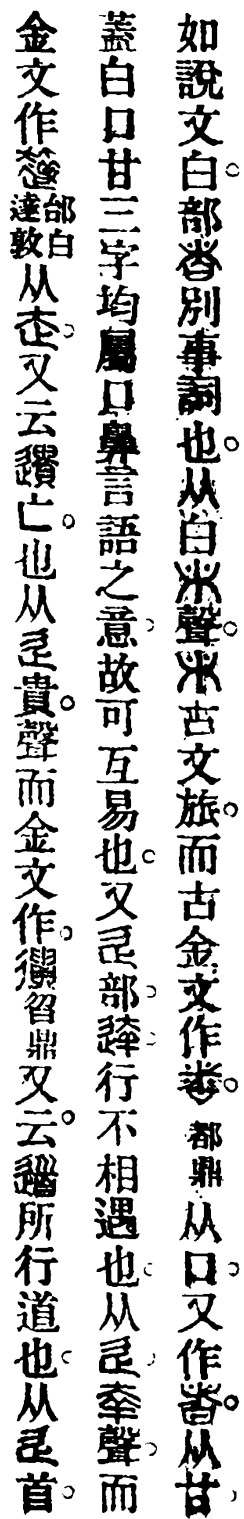 如說文白部者別事詞也。从白聲。古文旅。而古金文作。都鼎从口。又作者。从甘
蓋白口甘三字均屬口鼻言語之意。故可互易也。又辵部。達。行不相遇也。从辵羍聲。而
金文作邰白達敦从。又云遺亡。也从辵貴。聲而金文作。曶鼎又云。道所行道也。从辵首。